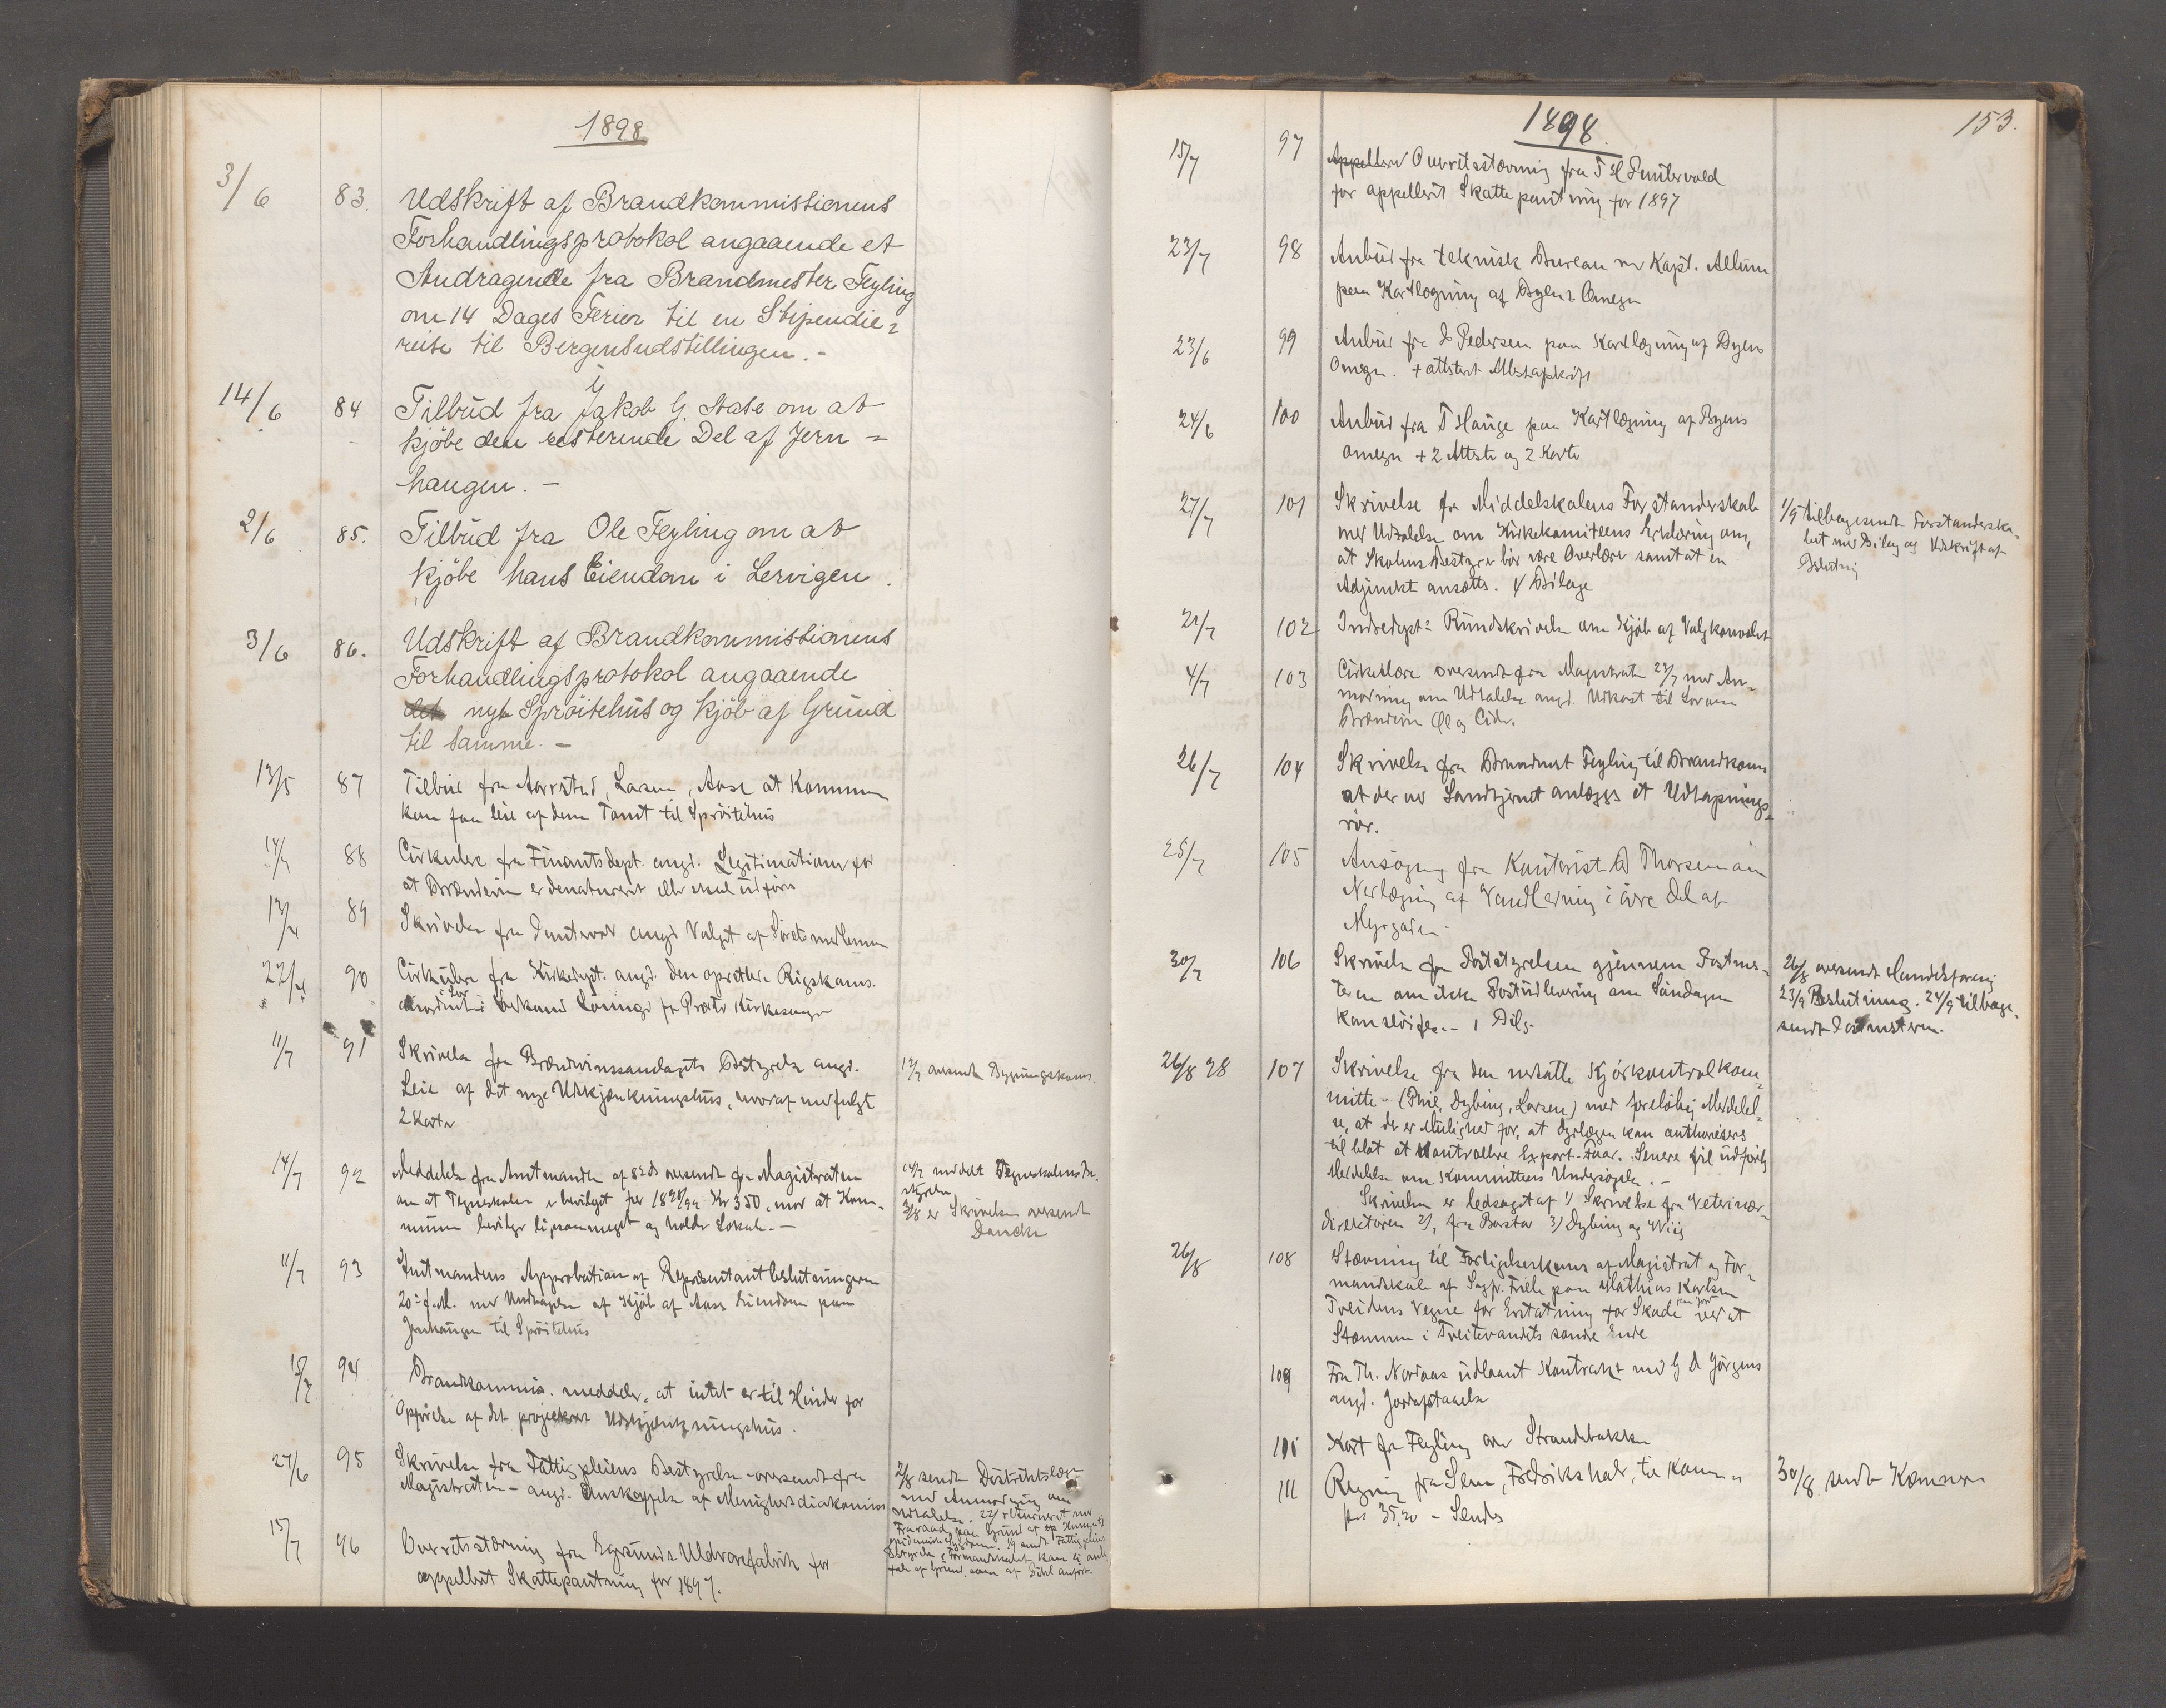 1898
3/6 83. Udskrift af Brandkommissionens
Forhandlingsprotokol angaaende et
Andragende fra Brandmester Feyling
om 14 Dages Ferier til en Stipendie=
reise til Bergensudstillingen. -
14/6 84 Tilbud fra Jakob G. Aase om at
kjøbe den resterende Del af Jern =
haugen. -
2/6 85. Tilbud fra Ole Feyling om at
kjøbe hans Eiendom i Lervigen.
3/6 86. Udskrift af Brandkommissionens
Forhandlingsprotokol angaaende
det nyt Sprøitehus og Kjøb af Grund
til samme. -
13/5 87 Tilbud fra Aarstad, Larsen, Aase at Kommunen
kan faa leie af dem Tomt til Sprøitehus
88 Cirkulære fra Finantsdept. angd. Legitimationer for
at Brændevin er denatureret eller skal udføres
89 Skrivelse fra angd Valget af
22/4 90 Cirkulære fra Kirkedept. angd. den oprettede
11/7 91 Skrivelse fra Brændevinssamlagets Bestyrelse angd.
Leie af det nye Udskjænkningshus, hvoraf medfulgt
2 Karter
12/7 oversendt Bygningskoms.
14/7 92 Meddelelse fra Amtmanden af 8de ds oversendt fra Magistraten
om at Tegneskolen er bevilget for 1898/99 Kr 350, mod at Kom-
munen bevilger ligesaameget og holder Lokale. -
14/7 meddelt Tegneskolens Be-
styrelse
2/8 er Skrivelsen oversendt
11/7 93 Amtmandens Approbation af Repræsentantbeslutningen
20de f.M. med Undtagelse af Kjøb af Aases Eiendom paa
Jernhaugen til Sprøitehus
94 Brandkommis. meddeler, at intet er til Hinder for
Opførelse af det projekteret Udskjænkningshus.
27/6 95 Skrivelse fra Fattigpleiens Bestyrelse - oversendt fra
Magistraten - angd. Anskaffelse af Menighedsdiakonisse
2/8 sendt Distriktslægen
med Anmodning om
Udtalelse. 22/8 returneret med
15/7 96 Overretsstævning fra Egersunds Uldvarefabrik for
appelleret Skattepantning for 1897.
1898.
153.
15/7 97 Appelleret Overretsstævning fra
for appelleret Skattepantning for 1897
23/7 98 Anbud fra teknisk Bureau ved Kapt. Allum
paa Kartlægning af Byens Omegn
23/6 99 Anbud fra Pedersen paa Kartlægning af Byens
Omegn. + attstert
24/6 100 Anbud fra T Hauge paa Kartlægning af Byens
Omegn + 2 Attster og 2 Karter
27/7 101 Skrivelse fra Middelskolens Forstanderskab
med Udtalelse om Kirkekomiteens Erklæring om,
at Skolens Bestyrer bør være Overlærer samt at en
Adjunkt ansættes. 4 Bilage
1/9 tilbagesendt Forstanderska-
bet med Bilag og Udskrift af
Beslutning
21/7 102 Indredept: Rundskrivelse om Kjøb af
4/7 103 Cirkulære oversendt fra Magistraten 23/7 med An-
modning om Udtalelse angd. Udkast til Lov om
Brændevin Øl og Cider.
26/7 104 Skrivelse fra Brandmest Feyling til Brandkoms
at der ved Sandtjernet anlægges et Udtapnings-
rør.
25/7 105 Ansøgning fra Kontorist Thorsen om
Nedlægning af Vandledning i øvre Del af
Myrgaden -
30/7 106 Skrivelse fra Poststyrelsen gjennem Postmes-
teren om ikke Postudlevering om Søndagen
kan sløifes. - 1 Bilg.
26/8 oversendt Handelsforening
23/9 Beslutning. 24/9 tilbage-
sendt Postmesteren.
26/8 98 107 Skrivelse fra den nedsatte Kjødkontrolkom-
mitte - (Thiel, Dybing, Larsen) med foreløbig Meddelel-
se, at der er Mulighed for, at Dyrlægen kan authoriseres
til blot at kontrollere Export-Faar. Senere vil udførlig
Meddelelse om Kommitteens Undersøgelse. -
Skrivelsen er ledsaget af 1) Skrivelse fra Veterinær-
direktøren 2), fra 3) Dybing og Wiig
26/8 108 Stævning til Forligelseskoms af Magistrat og For-
mandskab af Sagf. Friele paa Mathias Karlsen
Tveidens Vegne for Erstatning for Skade paa Jord ved at
Stemmen i Tveitevandets søndre Ende
109 Fra Th. Nordaas udlaant Kontrakt med G
angd. Jordafstaaelse
110 Kart fra Feyling over Strandebakken
111 Regning fra Fredrikshald, til Kommunen
paa 35,20 - Sendes
30/8 sendt Kæmneren